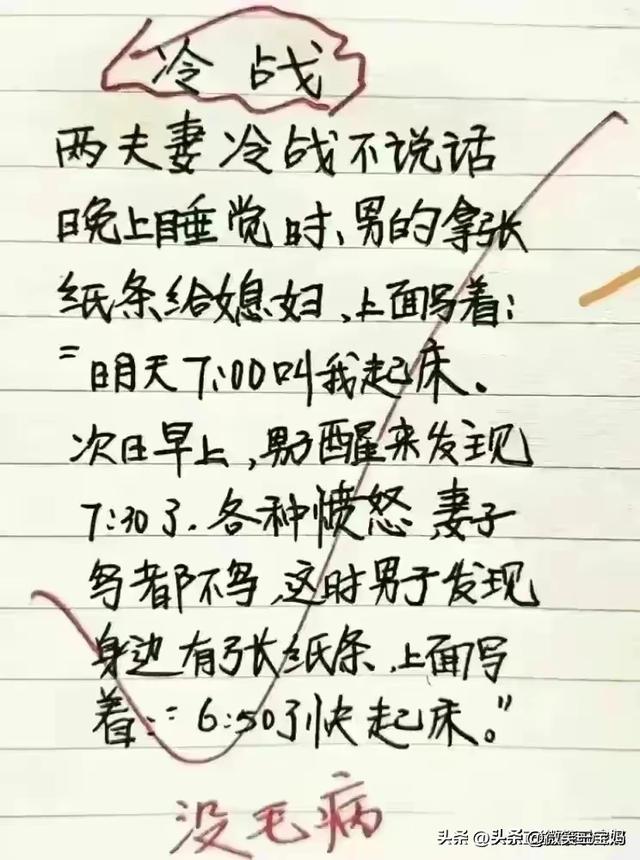 冷战
两夫妻冷战不说话
晚上睡觉时、男的拿张
纸条给媳妇、上面写着:
"明天7:00叫我起床、
次日早上,男子醒来发现
7:30了.各种愤怒,妻子
鸟都不鸟,这时男子发现
身边有张纸条、上面写
着:"6:50了快起床。"
没毛病